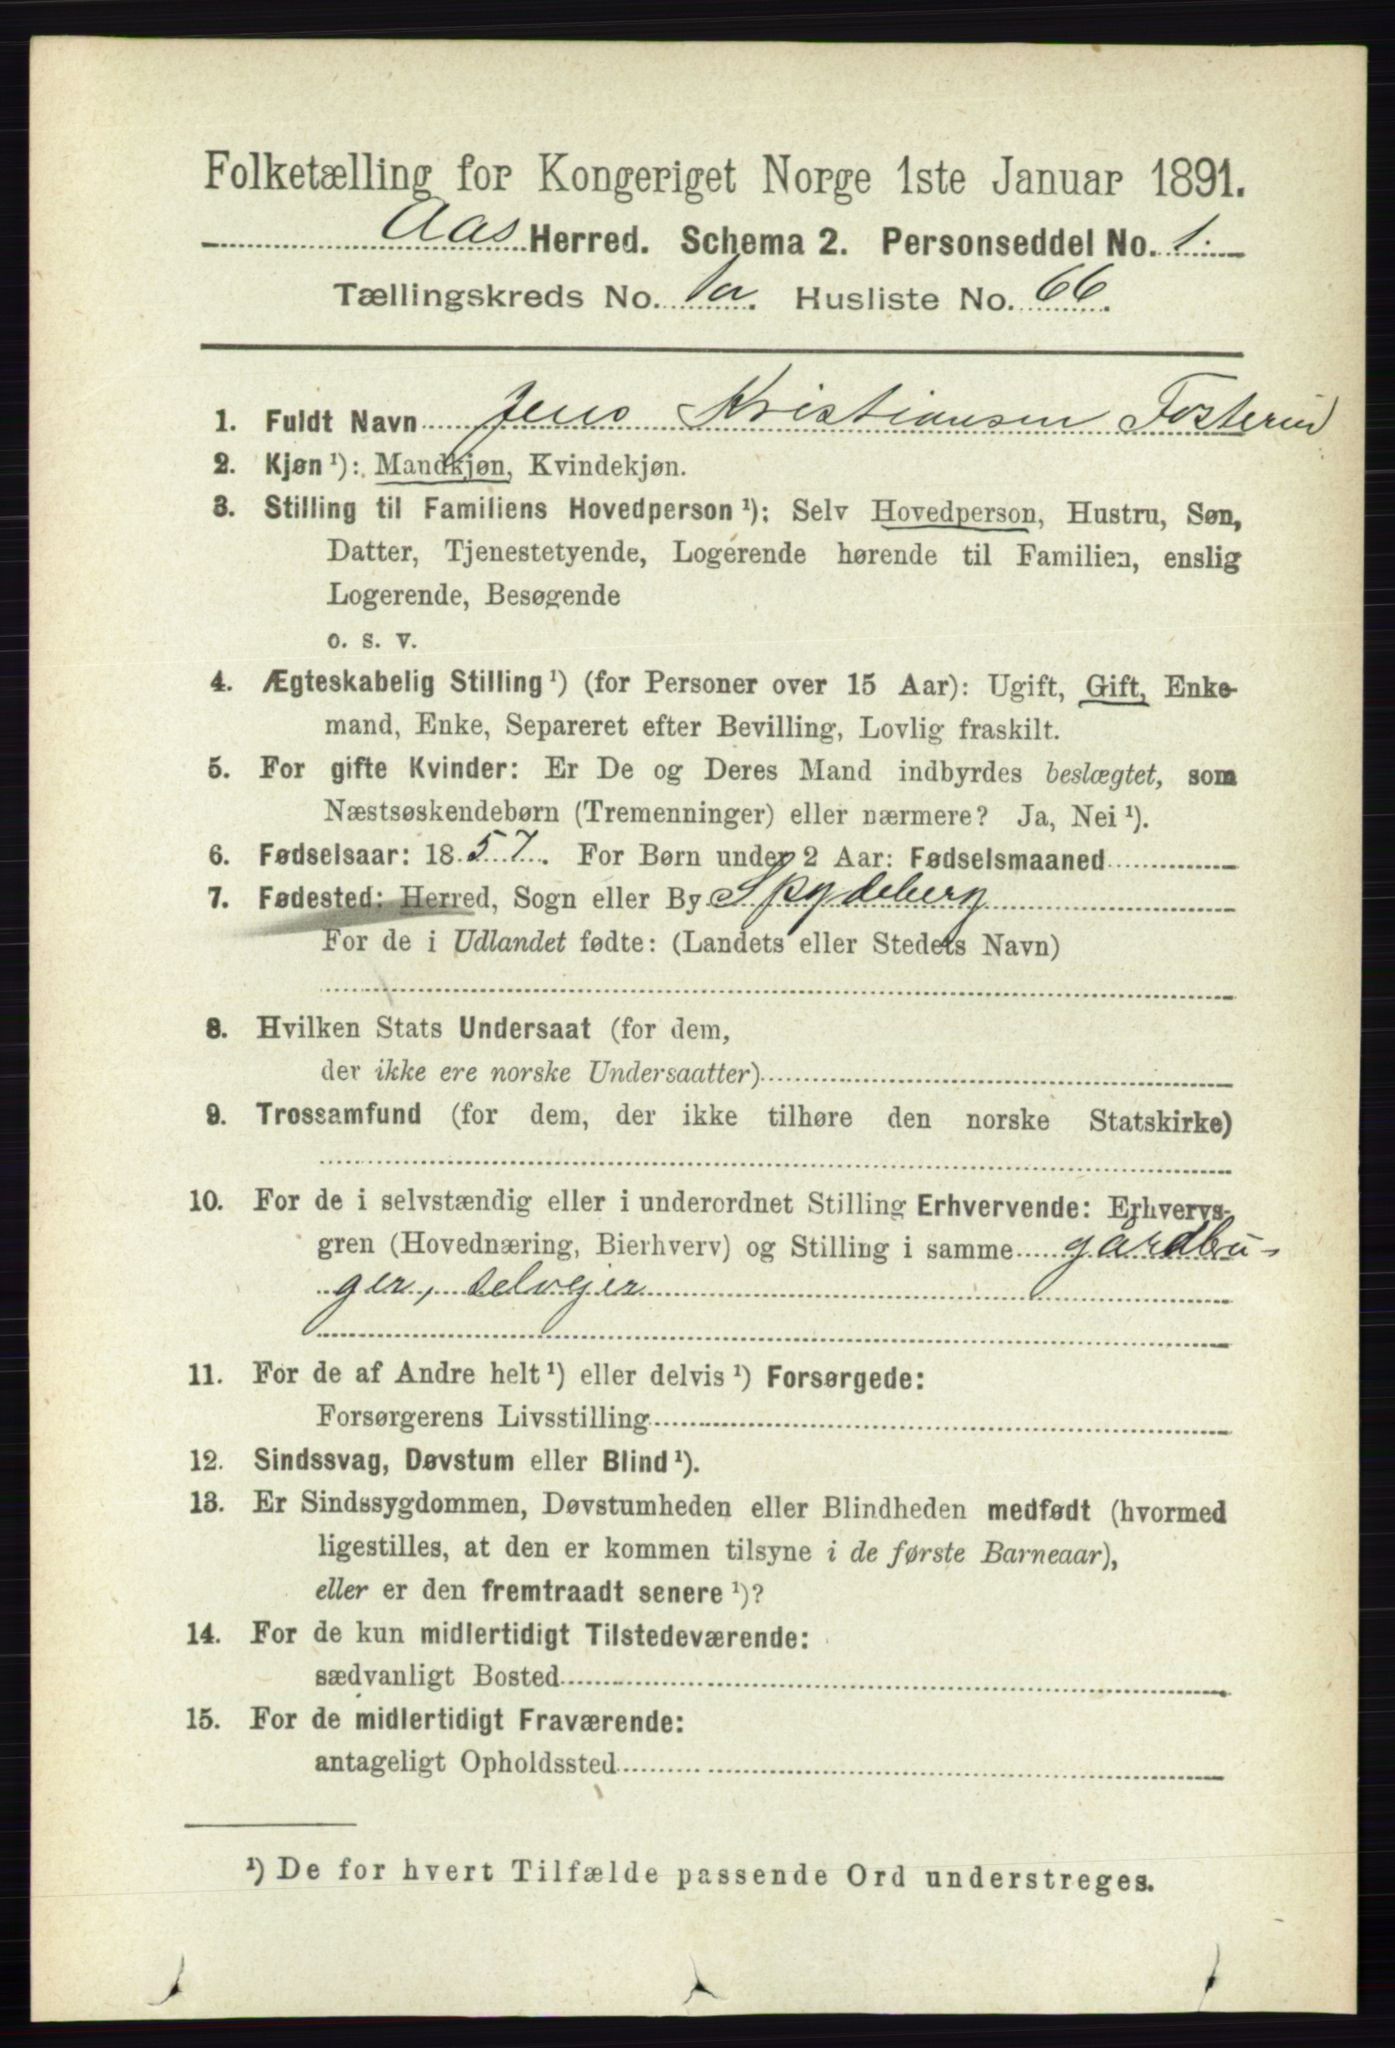 Folketælling for Kongeriget Norge 1ste Januar 1891.
Aas Herred. Schema 2. Personseddel No. 1.
Tællingskreds No. 1a. Husliste No. 66.
1. Fuldt Navn Jens Kristiansen Fosterud
2. Kjøn ¹): Mandkjøn, Kvindekjøn.
3. Stilling til Familiens Hovedperson ¹): Selv Hovedperson, Hustru, Søn,
Datter, Tjenestetyende, Logerende hørende til Familien, enslig
Logerende, Besøgende
o. s. v.
4. Ægteskabelig Stilling ¹) (for Personer over 15 Aar): Ugift, Gift, Enke-
mand, Enke, Separeret efter Bevilling, Lovlig fraskilt.
5. For gifte Kvinder: Er De og Deres Mand indbyrdes beslægtet, som
Næstsøskendebørn (Tremenninger) eller nærmere? Ja, Nei ¹).
6. Fødselsaar: 1857. For Børn under 2 Aar: Fødselsmaaned
7. Fødested: Herred, Sogn eller By Spydeberg
For de i Udlandet fødte: (Landets eller Stedets Navn)
8. Hvilken Stats Undersaat (for dem,
der ikke ere norske Undersaatter)
9. Trossamfund (for dem, der ikke tilhøre den norske Statskirke)
10. For de i selvstændig eller i underordnet Stilling Erhvervende: Erhvervs-
gren (Hovednæring, Bierhverv) og Stilling i samme gårdbru-
ger, selvejer
11. For de af Andre helt ¹) eller delvis ¹) Forsørgede:
Forsørgerens Livsstilling
12. Sindssvag, Døvstum eller Blind ¹).
13. Er Sindssygdommen, Døvstumheden eller Blindheden medfødt (hvormed
ligestilles, at den er kommen tilsyne i de første Barneaar),
eller er den fremtraadt senere ¹)?
14. For de kun midlertidigt Tilstedeværende:
sædvanligt Bosted
15. For de midlertidigt Fraværende:
antageligt Opholdssted
¹) De for hvert Tilfælde passende Ord understreges.